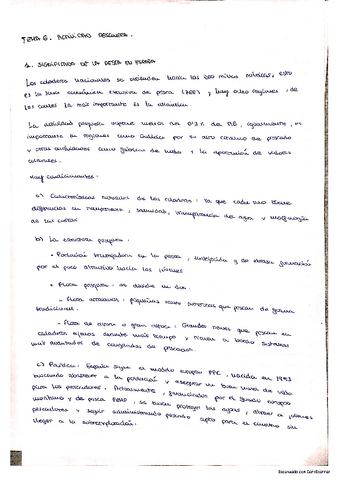 TEMA 6. ACTIVIDAD PESQUERA.
1. SIGNIFICADO DE LA PESCA EN ESPAÑA
Los caladeros nacionales se extienden hasta las 200 millas náuticas, esto
es la zona económica exclusiva de pesca (ZEE) y hay ocho regiones, de
las cuales la más importante es la atlántica.
La actividad pesquera supone menos del 0'2% del PIB, igualmente, es
importante en regiones como Galicia por su alto consumo de pescado
y otras actividades como
culturales.
Hay condicionamientos:
a) Características naturales de los caladeros: ya que cada uno tiene
diferencias en temperatura, salinidad, transparencia del agua y morfología
de las costas
b) La estructura pesquera.
• Población trabajadora en la pesca, envejecida y de escasa formación
por el poco atractivo hacia los jóvenes
• Flota pesquera: se divide en dos.
- Flota artesanal: pequeñas naves que pescan de forma
tradicional.
- Flota de altura o gran altura: Grandes naves que pescan en
caladeros ajenos durante más tiempo y llevan a bordo sistemas
de pescado.
c) Política: España sigue el modelo europeo PPC, nacida en 1983
buscando abastecer a la población y asegurar un buen nivel de vida
para los pescadores. Actualmente, financiados por el fondo europeo
marítimo y de pesca FEMP, se busca proteger las aguas, atraer a jóvenes
pescadores y seguir suministrando pescado apto para el consumo sin
llegar a la sobreexplotación.
Escaneado con CamScanner